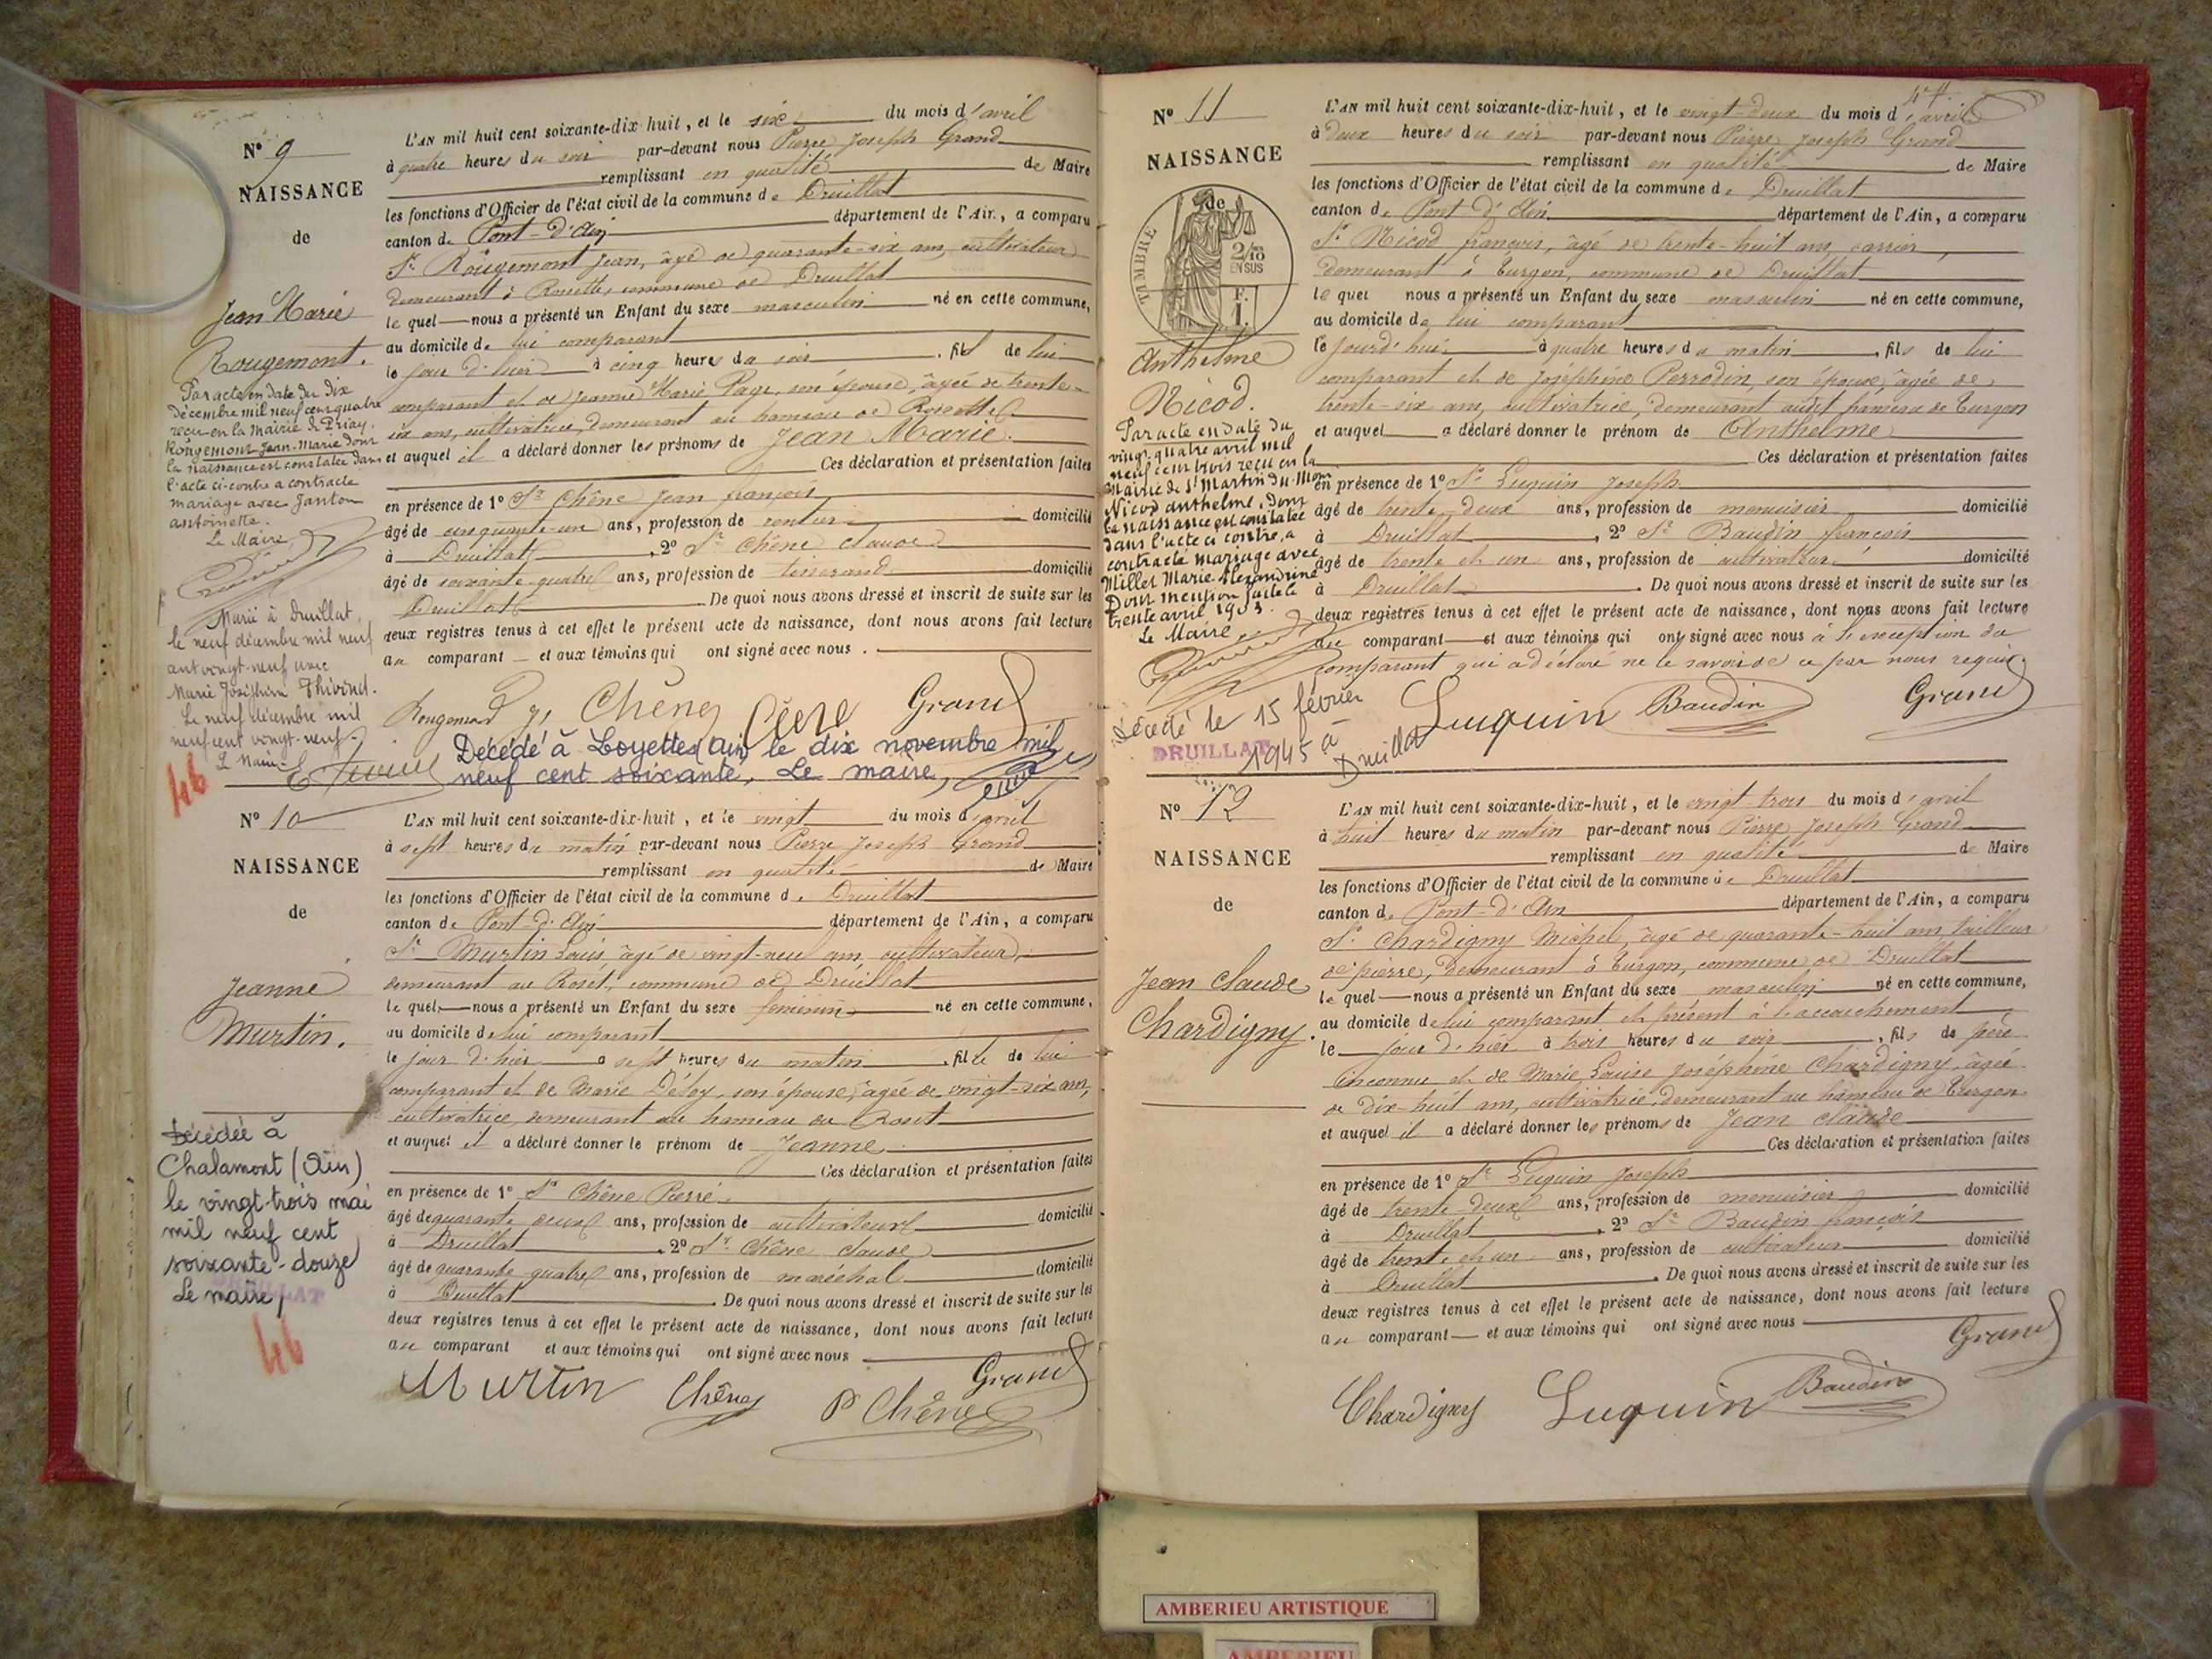 Nº 9
NAISSANCE
de
Jean Marie
Rougemont.
Par acte en date du dix
décembre mil neuf cent quatre
reçu en la Mairie de Priay,
Rougemont Jean-Marie dont
la naissance est constatée dans
l'acte ci-contre a contracté
mariage avec Janton
antoinette.
Le Maire
Marié à Druillat,
le neuf décembre mil neuf
cent vingt-neuf avec
Marie Joséphine Thivend.
Le neuf décembre mil
neuf cent vingt-neuf.
Le Maire
46
L'AN mil huit cent soixante-dix huit, et le six du mois d'avril
à quatre heures du soir par-devant nous Pierre Joseph Grand
remplissant en qualité de Maire
les fonctions d'Officier de l'état civil de la commune de Druillat
canton de Pont-d'Ain département de l'Ain, a comparu
Sr Rougemont Jean, âgé de quarante-six ans, cultivateur
demeurant à Rossettes, commune de Druillat
le quel nous a présenté un Enfant du sexe masculin né en cette commune,
au domicile de lui comparant
le jour d'hier à cinq heures du soir, fils de lui
comparant et de Jeanne Marie Page, son épouse, âgée de trente-
six ans, cultivatrice, demeurant au hameau de Rossettes
et auquel il a déclaré donner les prénoms de Jean Marie.
Ces déclaration et présentation faites
en présence de 1º Sr Chêne Jean françois
âgé de cinquante-un ans, profession de rentier domicilié
à Druillat, 2º Sr Chêne claude
âgé de soixante-quatre ans, profession de tisserand domicilié
Druillat. De quoi nous avons dressé et inscrit de suite sur les
deux registres tenus à cet effet le présent acte de naissance, dont nous avons fait lecture
au comparant et aux témoins qui ont signé avec nous.
Rougemont Chêne Grand
Décédé à Loyettes (Ain) le dix novembre mil
neuf cent soixante, Le maire,
Nº 10
NAISSANCE
de
Jeanne
Murtin.
Décédée à
Chalamont (Ain)
le vingt-trois mai
mil neuf cent
soixante-douze
Le maire,
DRUILLAT
46
L'AN mil huit cent soixante-dix-huit, et le vingt du mois d'avril
à sept heures du matin par-devant nous Pierre Joseph Grand
remplissant en qualité de Maire
les fonctions d'Officier de l'état civil de la commune de Druillat
canton de Pont-d'Ain département de l'Ain, a comparu
Sr Murtin Louis, âgé de vingt-neuf ans, cultivateur,
demeurant au Roset, commune de Druillat
le quel nous a présenté un Enfant du sexe féminin né en cette commune,
au domicile de lui comparant
le jour d'hier à sept heures du matin, fille de lui
comparant et de Marie Déloy, son épouse, âgée de vingt-six ans,
cultivatrice, demeurant au hameau du Roset
et auquel il a déclaré donner le prénom de Jeanne
Ces déclaration et présentation faites
en présence de 1º Sr Chêne Pierre
âgé de quarante deux ans, profession de cultivateur domicilié
à Druillat, 2º Sr Chêne claude
âgé de quarante quatre ans, profession de maréchal domicilié
à Druillat. De quoi nous avons dressé et inscrit de suite sur les
deux registres tenus à cet effet le présent acte de naissance, dont nous avons fait lecture
au comparant et aux témoins qui ont signé avec nous
Grand
Murtin Chêne P Chêne
Nº 11
NAISSANCE
de
TIMBRE
2/10
EN SUS
F.
1.
Anthelme
Nicod.
Par acte en date du
vingt quatre avril mil
neuf cent trois reçu en la
Mairie de St Martin du Mont
Nicod anthelme, dont
la naissance est constatée
dans l'acte ci contre, a
contracté mariage avec
Millet Marie Alexandrine
Pour mention faite le
trente avril 1903.
Le Maire
Décédé le 15 février
1945 à
Druillat
DRUILLAT
L'AN mil huit cent soixante-dix-huit, et le vingt-deux du mois d'avril
à deux heures du soir par-devant nous Pierre Joseph Grand
remplissant en qualité de Maire
les fonctions d'Officier de l'état civil de la commune de Druillat
canton de Pont-d'Ain département de l'Ain, a comparu
Sr Nicod françois, âgé de trente-huit ans, carrier,
demeurant à Turgon, commune de Druillat
le quel nous a présenté un Enfant du sexe masculin né en cette commune,
au domicile de lui comparant
le jourd'hui à quatre heures du matin, fils de lui
comparant et de Joséphine Perrodin, son épouse, âgée de
trente-six ans, cultivatrice, demeurant audit hameau de Turgon
et auquel a déclaré donner le prénom de Anthelme
Ces déclaration et présentation faites
en présence de 1º Sr Luquin Joseph
âgé de trente-deux ans, profession de menuisier domicilié
à Druillat, 2º Sr Baudin françois
âgé de trente et un ans, profession de cultivateur domicilié
à Druillat. De quoi nous avons dressé et inscrit de suite sur les
deux registres tenus à cet effet le présent acte de naissance, dont nous avons fait lecture
au comparant et aux témoins qui ont signé avec nous à l'exception du
comparant qui a déclaré ne le savoir de ce par nous requis
Luquin Baudin Grand
Nº 12
NAISSANCE
de
Jean claude
Chardigny.
L'AN mil huit cent soixante-dix-huit, et le vingt-trois du mois d'avril
à huit heures du matin par-devant nous Pierre Joseph Grand
remplissant en qualité de Maire
les fonctions d'Officier de l'état civil de la commune de Druillat
canton de Pont-d'Ain département de l'Ain, a comparu
Sr Chardigny Michel, âgé de quarante-huit ans, tailleur
de pierre, demeurant à Turgon, commune de Druillat
le quel nous a présenté un Enfant du sexe masculin né en cette commune,
au domicile de lui comparant et présent à l'accouchement
le jour d'hier à trois heures du soir, fils de père
inconnu et de Marie Louise Joséphine Chardigny, âgée
de dix-huit ans, cultivatrice, demeurant au hameau de Turgon
et auquel il a déclaré donner les prénoms de Jean claude
Ces déclaration et présentation faites
en présence de 1º Sr Luquin Joseph
âgé de trente-deux ans, profession de menuisier domicilié
à Druillat, 2º Sr Baudin françois
âgé de trente et un ans, profession de cultivateur domicilié
à Druillat. De quoi nous avons dressé et inscrit de suite sur les
deux registres tenus à cet effet le présent acte de naissance, dont nous avons fait lecture
au comparant et aux témoins qui ont signé avec nous
Grand
Chardigny Luquin Baudin
AMBERIEU ARTISTIQUE
AMBERIEU